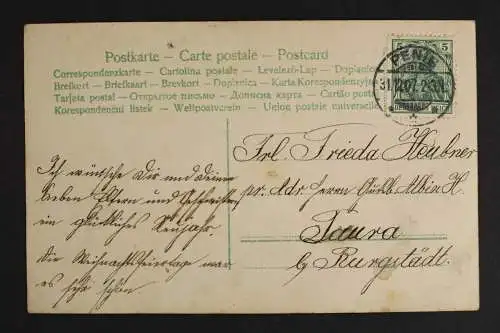 Postkarte – Carte postale – Postcard
Correspondenzkarte – Cartolina postale – Levelező-Lap – Dopisnice
Brefkort – Briefkaart – Brevkort – Dopisnica – Karta Korespondencyjna
Tarjeta postal – Открытое письмо – Дописна карта – Cartão postal
Korespondenční lístek – Weltpostverein – Union postale universelle
5 5
PENIG
31.12.07. 2-3N
Frl. Frieda Heubner
pr. Adr. Herrn Albin H.
Taura
b/ Burgstädt.
Ich wünsche Dir und Deinen
lieben Eltern und Geschwister
ein glückliches Neujahr.
Die Weihnachtsfeiertage war
es sehr schön.